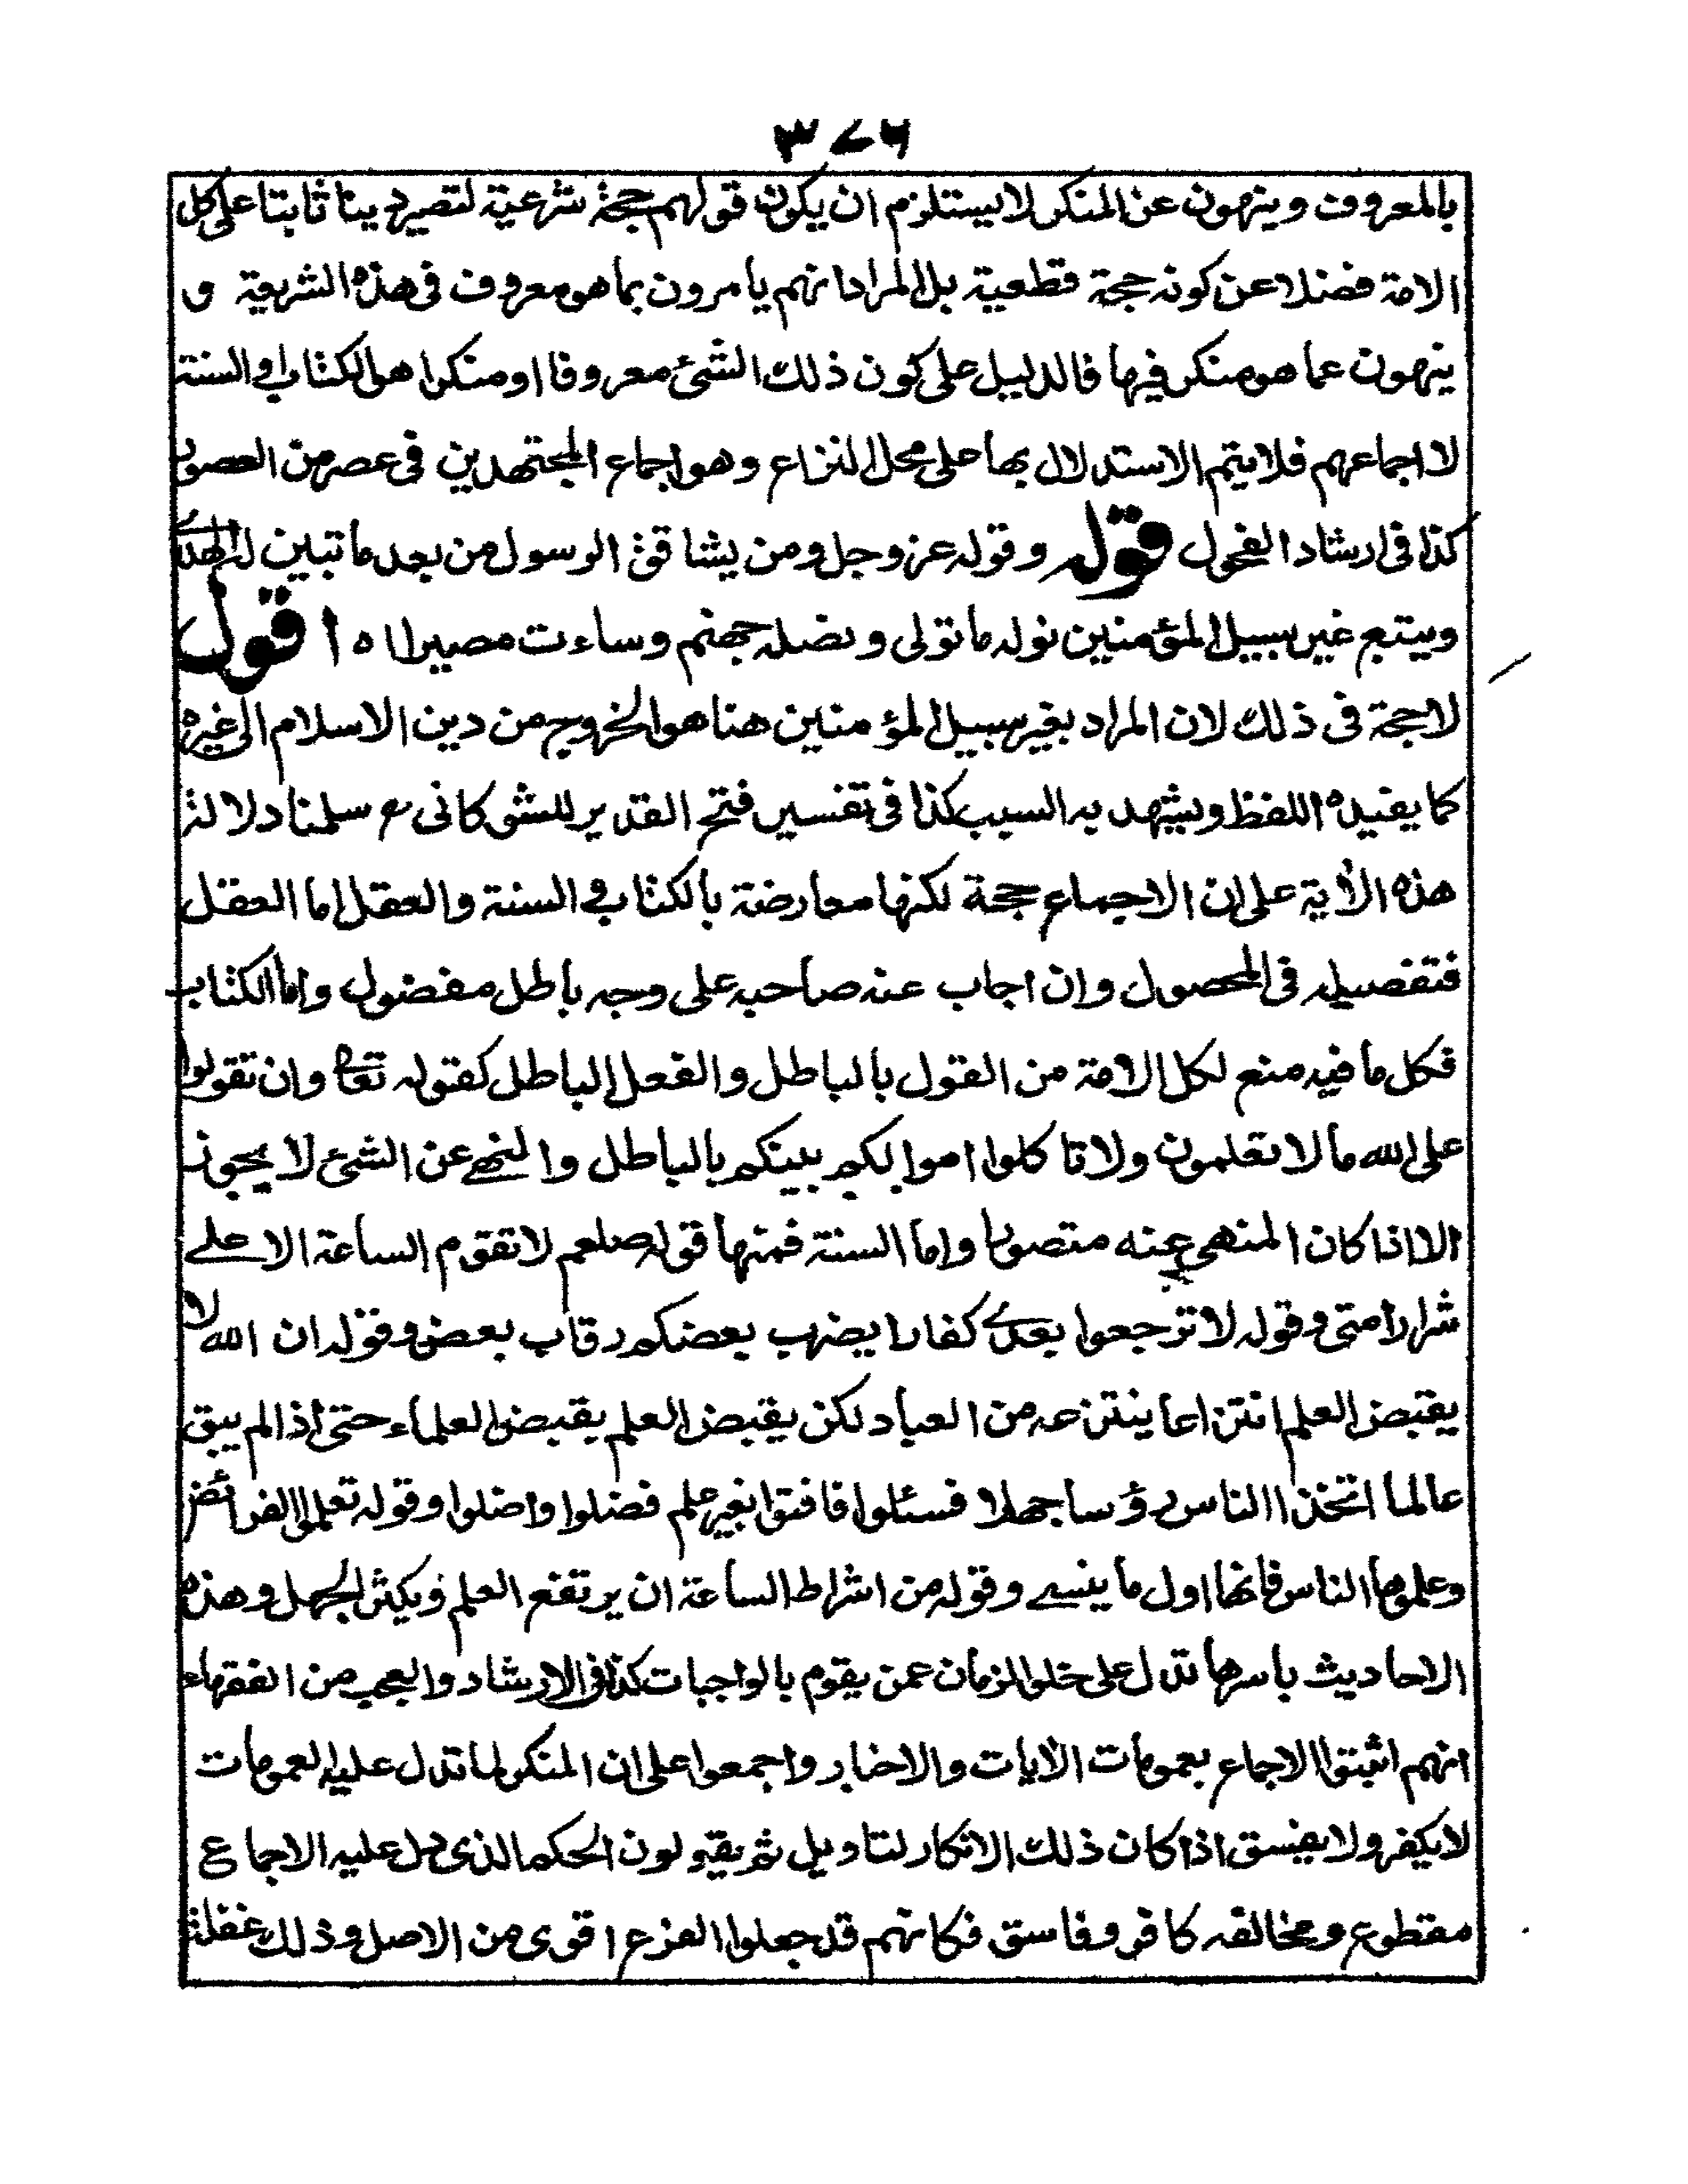 ٣٧٦
بالمعروف وينهون عن المنكر لا يستلزم ان يكون قولهم حجة شرعية لتصير دينا ثابتا على كل
الامة فضلا عن كونه حجة قطعية بل المراد انهم يامرون بما هو معروف فى هذه الشريعة و
ينهون عما هو منكر فيها فالدليل على كون ذلك الشئ معروفا او منكرا هو الكتاب او السنة
لا اجماعهم فلا يتم الاستدلال بها على محل النزاع وهو اجماع المجتهدين فى عصر من العصور
كذا فى ارشاد الفحول قوله وقوله عز وجل ومن يشاقق الرسول من بعد ما تبين له الهدى
ويتبع غير سبيل المؤمنين نوله ما تولى ونصله جهنم وساءت مصيرا اه اقول
لا حجة فى ذلك لان المراد بغير سبيل المؤمنين هنا هو الخروج من دين الاسلام الى غيره
كما يفيده اللفظ ويشهد به السبب كذا فى تفسير فتح القدير للشوكانى سلمنا دلالة
هذه الأية على ان الاجماع حجة لكنها معارضة بالكتاب و السنة والعقل اما العقل
فتفصيله فى المحصول وان اجاب عنه صاحبه على وجه باطل مفضول واما الكتاب
فكل ما فيه منع لكل الامة من القول بالباطل والفعل الباطل كقوله تعالى وان تقولوا
على الله ما لا تعلمون ولا تاكلوا اموالكم بينكم بالباطل والنهى عن الشئ لا يجوز
الا اذا كان المنهى عنه متصورا واما السنة فمنها قوله صلعم لا تقوم الساعة الا على
شرار امتى وقوله لا ترجعوا بعدى كفارا يضرب بعضكم رقاب بعض وقوله ان الله لا
يقبض العلم انتزاعا ينتزعه من العباد لكن يقبض العلم بقبض العلماء حتى اذا لم يبق
عالما اتخذ الناس رؤسا جهلا فسئلوا فافتوا بغير علم فضلوا واضلوا وقوله تعلموا الفرائض
وعلموها الناس فانها اول ما ينسى وقوله من اشراط الساعة ان يرتفع العلم ويكثر الجهل وهذه
الاحاديث باسرها تدل على خلو الزمان عمن يقوم بالواجبات كذا فى الارشاد والعجب من الفقهاء
انهم اثبتوا الاجماع بعمومات الأيات والاخبار واجمعوا على ان المنكر لما تدل عليه العمومات
لا يكفر ولا يفسق اذا كان ذلك الانكار لتاويل ثم يقولون الحكم الذى دل عليه الاجماع
مقطوع ومخالفه كافر وفاسق فكانهم قد جعلوا الفرع اقوى من الاصل وذلك غفلة